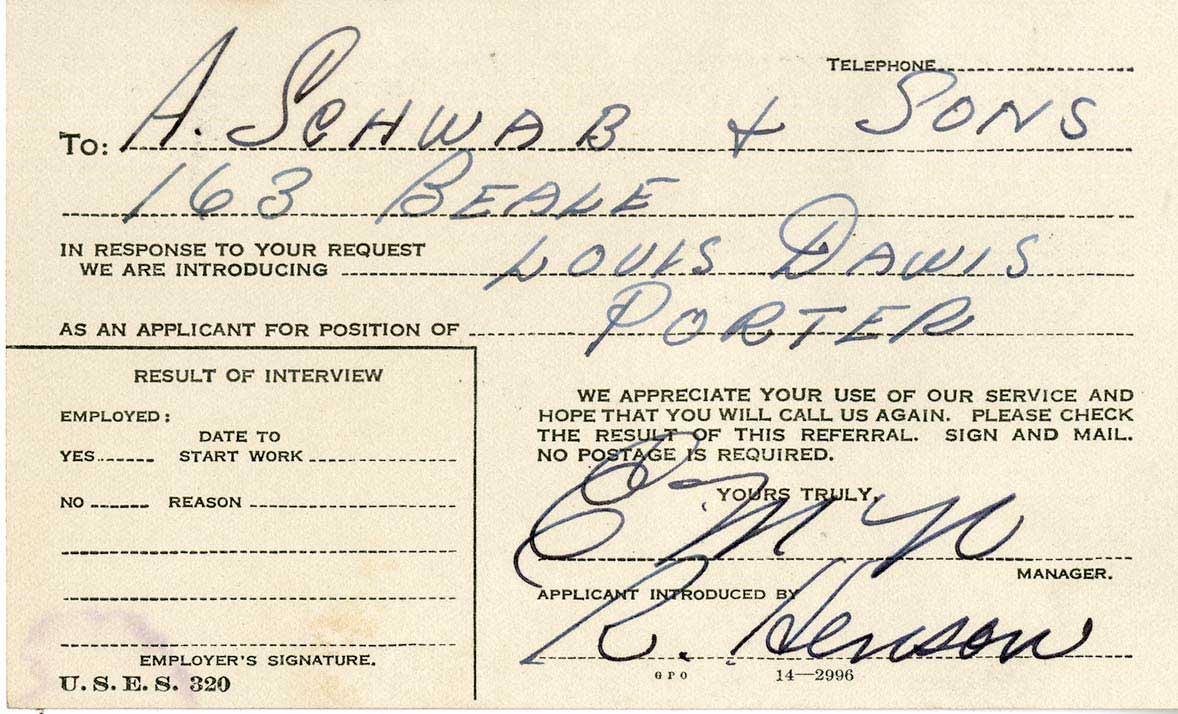 TELEPHONE
TO: A. SCHWAB & SONS
163 BEALE
IN RESPONSE TO YOUR REQUEST
WE ARE INTRODUCING LOUIS DAWIS
AS AN APPLICANT FOR POSITION OF PORTER
RESULT OF INTERVIEW
EMPLOYED:
DATE TO
YES START WORK
NO REASON
EMPLOYER'S SIGNATURE.
U. S. E. S. 320
WE APPRECIATE YOUR USE OF OUR SERVICE AND
HOPE THAT YOU WILL CALL US AGAIN. PLEASE CHECK
THE RESULT OF THIS REFERRAL. SIGN AND MAIL.
NO POSTAGE IS REQUIRED.
YOURS TRULY,
MANAGER.
APPLICANT INTRODUCED BY
R. Henson
GPO 14—2996